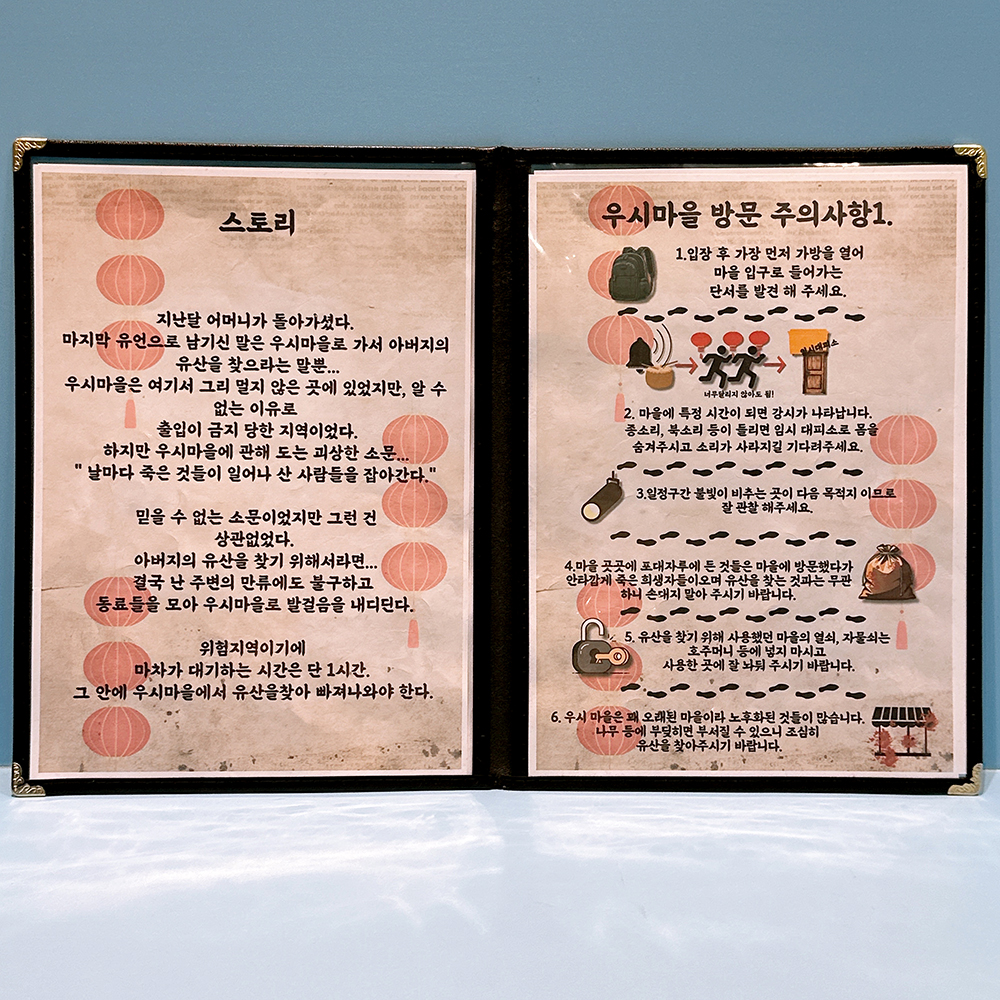 스토리
지난달 어머니가 돌아가셨다.
마지막 유언으로 남기신 말은 우시마을로 가서 아버지의
유산을 찾으라는 말뿐...
우시마을은 여기서 그리 멀지 않은 곳에 있었지만, 알 수
없는 이유로
출입이 금지 당한 지역이었다.
하지만 우시마을에 관해 도는 괴상한 소문...
" 날마다 죽은 것들이 일어나 산 사람들을 잡아간다."
믿을 수 없는 소문이었지만 그런 건
상관없었다.
아버지의 유산을 찾기 위해서라면...
결국 난 주변의 만류에도 불구하고
동료들을 모아 우시마을로 발걸음을 내디딘다.
위험지역이기에
마차가 대기하는 시간은 단 1시간.
그 안에 우시마을에서 유산을찾아 빠져나와야 한다.
우시마을 방문 주의사항1.
1.입장 후 가장 먼저 가방을 열어
마을 입구로 들어가는
단서를 발견 해 주세요.
임시대피소
너무달리지 않아도 됨!
2. 마을에 특정 시간이 되면 강시가 나타납니다.
종소리, 북소리 등이 들리면 임시 대피소로 몸을
숨겨주시고 소리가 사라지길 기다려주세요.
3.일정구간 불빛이 비추는 곳이 다음 목적지 이므로
잘 관찰 해주세요.
4.마을 곳곳에 포대자루에 든 것들은 마을에 방문했다가
안타깝게 죽은 희생자들이오며 유산을 찾는 것과는 무관
하니 손대지 말아 주시기 바랍니다.
5. 유산을 찾기 위해 사용했던 마을의 열쇠, 자물쇠는
호주머니 등에 넣지 마시고
사용한 곳에 잘 놔둬 주시기 바랍니다.
6. 우시 마을은 꽤 오래된 마을이라 노후화된 것들이 많습니다.
나무 등에 부딪히면 부서질 수 있으니 조심히
유산을 찾아주시기 바랍니다.